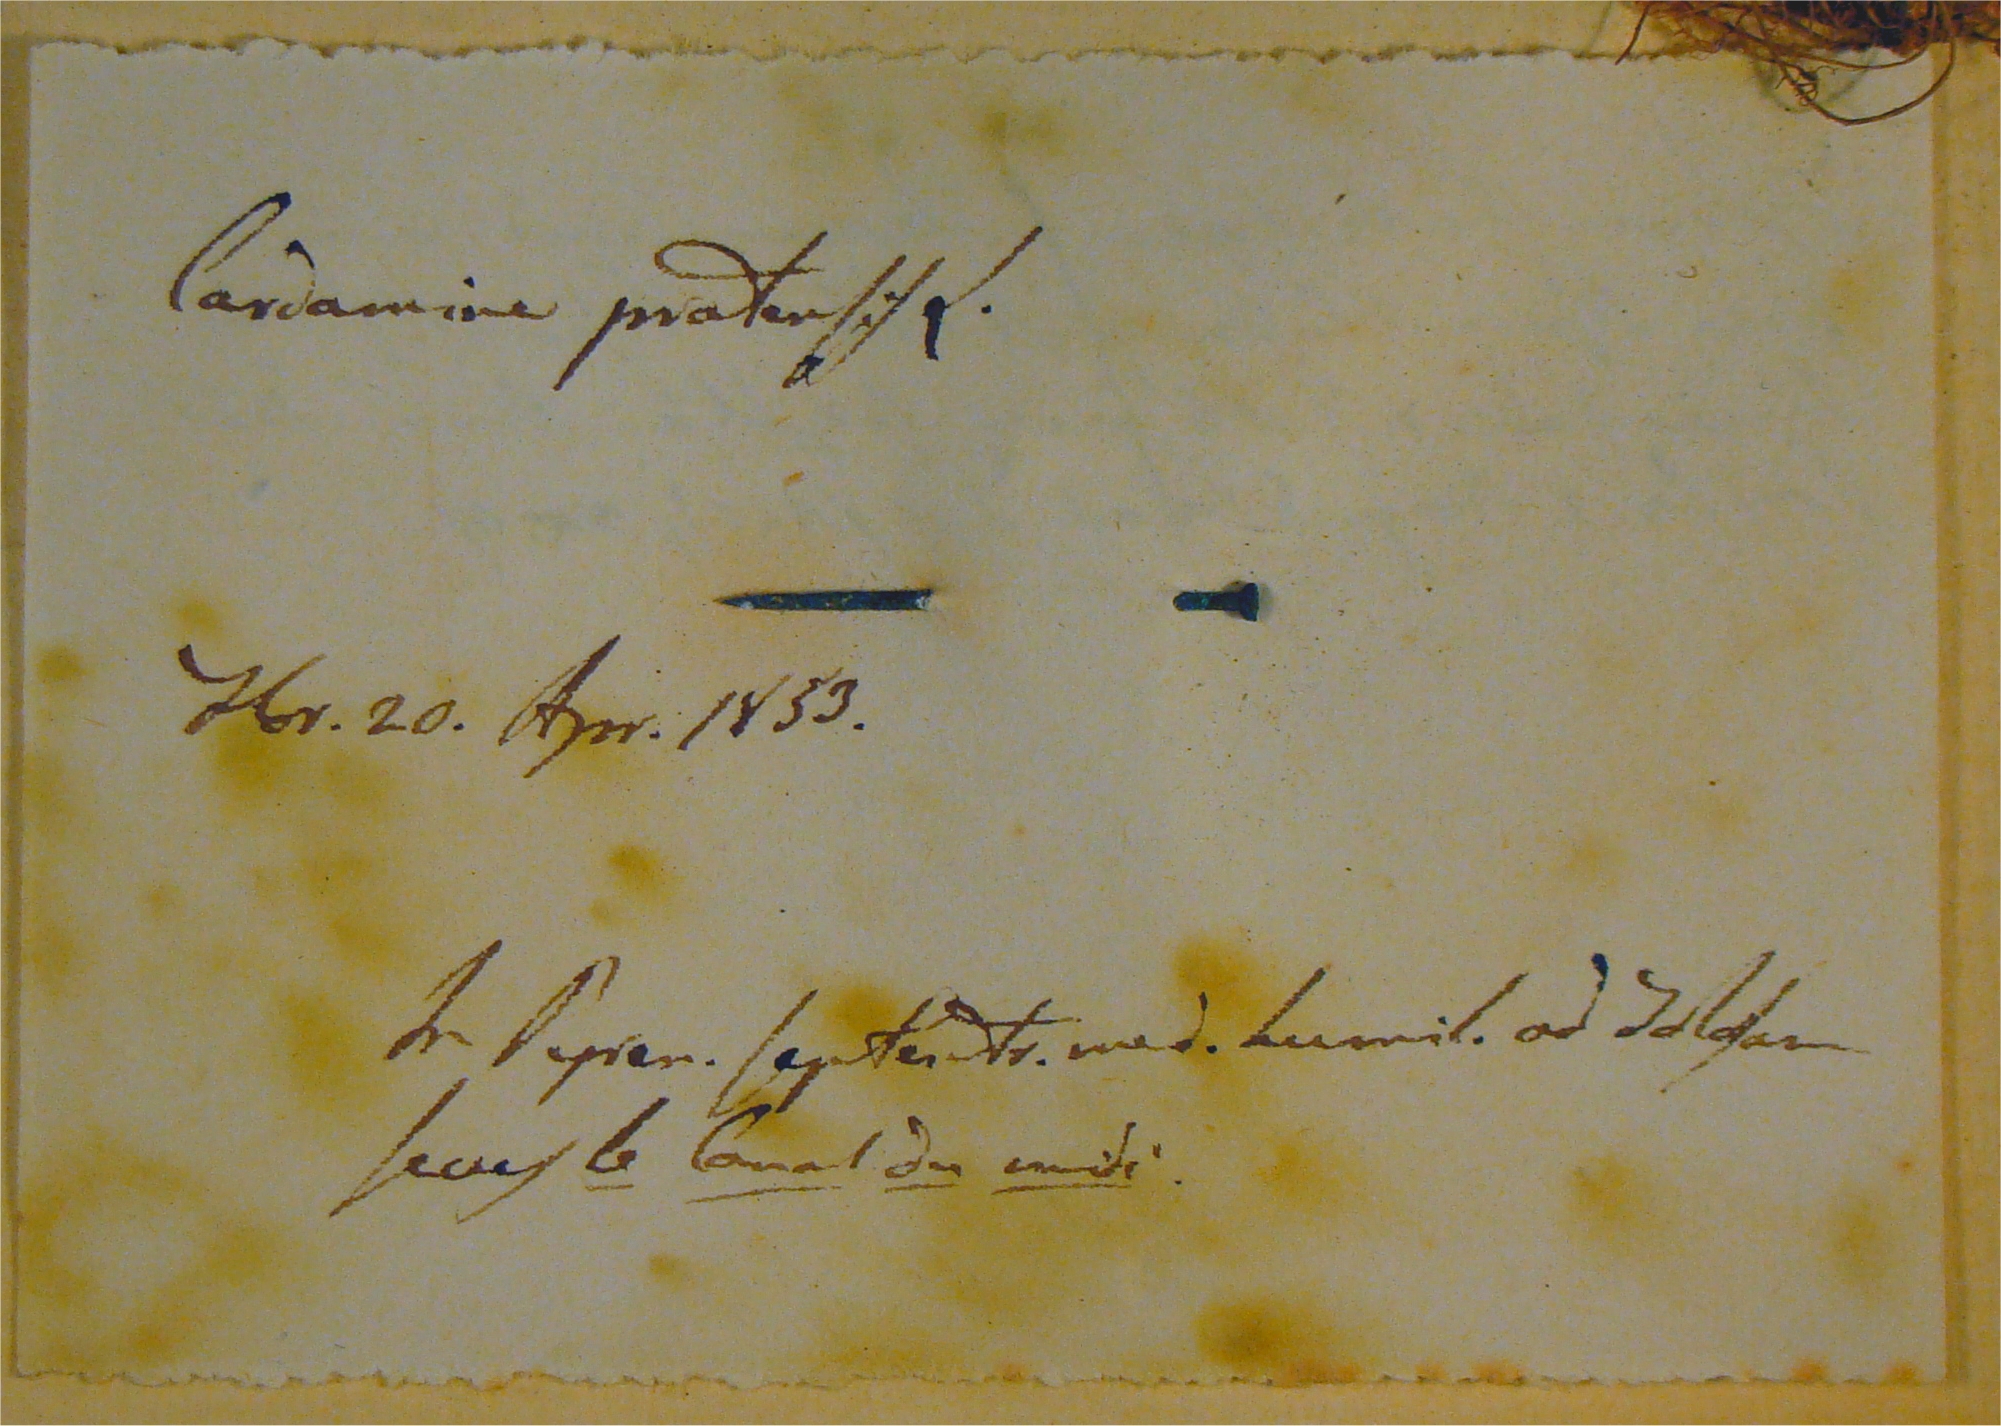 Cardamine pratensis L.
Hbr. 20. Apr. 1853.
In Pepren. septentr. med. humil. ad
secus le Canal du midi.